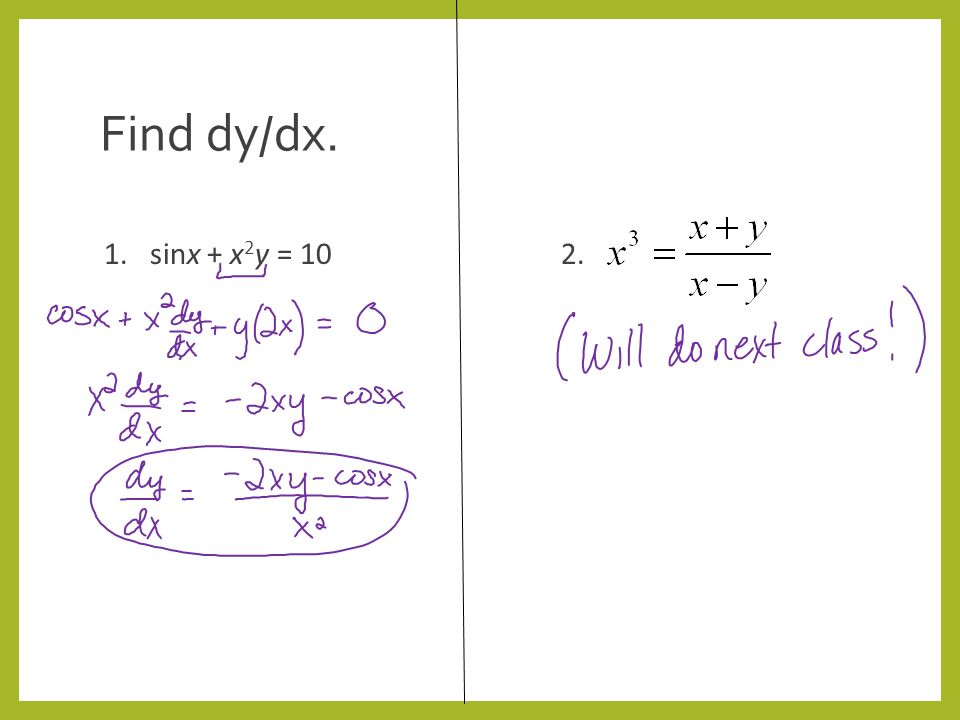 Find dy/dx.
1. sinx + x²y = 10
cosx + x² dy/dx + y(2x) = 0
x² dy/dx = -2xy - cosx
dy/dx = (-2xy - cosx)/x²
2. x³ = (x + y)/(x - y)
(Will do next class!)